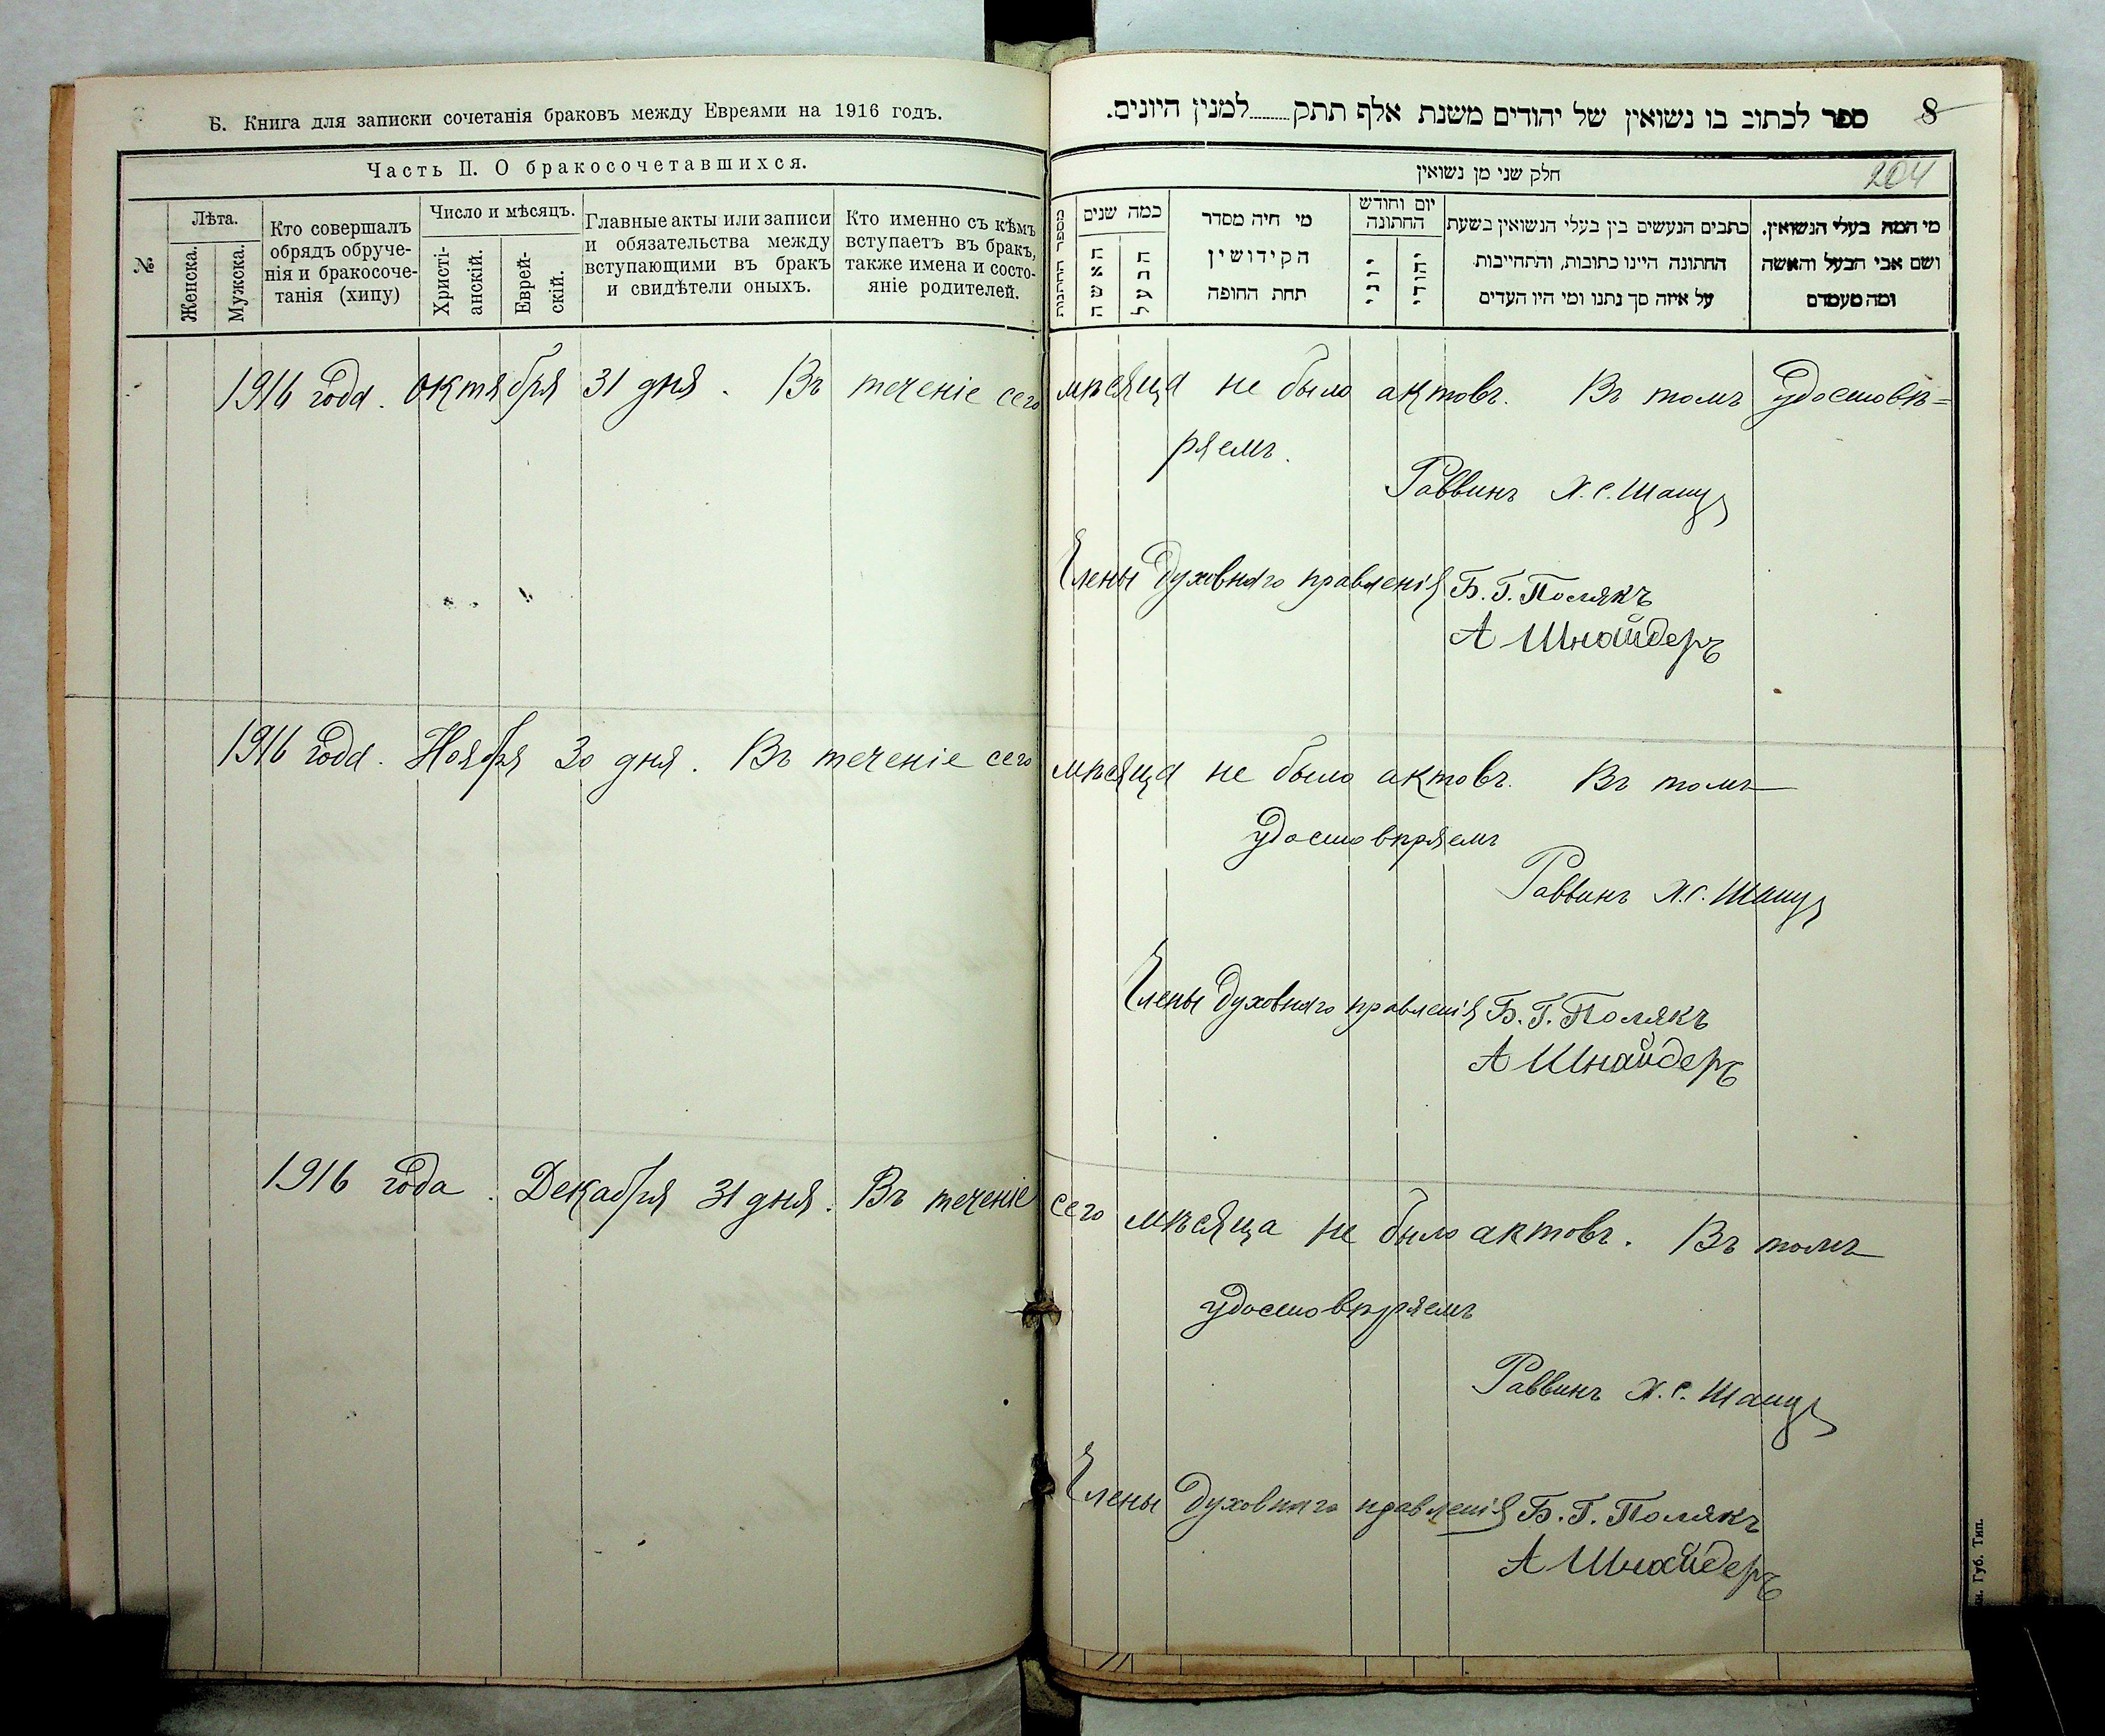 Б. Книга для записки сочетанія браковъ между Евреями на 1916 годъ.
Часть II. О бракосочетавшихся.
№
Лѣта.
Женска.
Мужска.
Кто совершалъ
обрядъ обруче-
нія и бракосоче-
танія (хипу)
Число и мѣсяцъ.
Христі-
анскій.
Еврей-
скій.
Главные акты или записи
и обязательства между
вступающими въ бракъ
и свидѣтели оныхъ.
Кто именно съ кѣмъ
вступаетъ въ бракъ,
также имена и состо-
яніе родителей.
ספר לכתוב בו נשואין של יהודים משנת אלף תתק......למנין היונים.
8
204
חלק שני מן נשואין
מספר החתונות
כמה שנים
האשה
הבעל
מי היה מסדר
הקידושין
תחת החופה
יום וחודש
החתונה
יוני
יהודי
כתבים הנעשים בין בעלי הנשואין בשעת
החתונה היינו כתובות, והתחייבות
על איזה סך נתנו ומי היו העדים
מי המה בעלי הנשואין,
ושם אבי הבעל והאשה
ומה מעמדם
1916 года. октября 31 дня. Въ теченіе сего мѣсяца не было актовъ. Въ томъ удостовѣ=
ряемъ.
Раввинъ Х. С. Шацъ
Члены духовнаго правленія Б. Г. Полякъ
А Шнайдеръ
1916 года. Ноября 30 дня. Въ теченіе сего мѣсяца не было актовъ. Въ томъ
удостовѣряемъ
Раввинъ Х. С. Шацъ
Члены духовнаго правленія Б. Г. Полякъ
А Шнайдеръ
1916 года. Декабря 31 дня. Въ теченіе сего мѣсяца не было актовъ. Въ томъ
удостовѣряемъ
Раввинъ Х. С. Шацъ
Члены духовнаго правленія Б. Г. Полякъ
А Шнайдеръ
Губ. Тип.